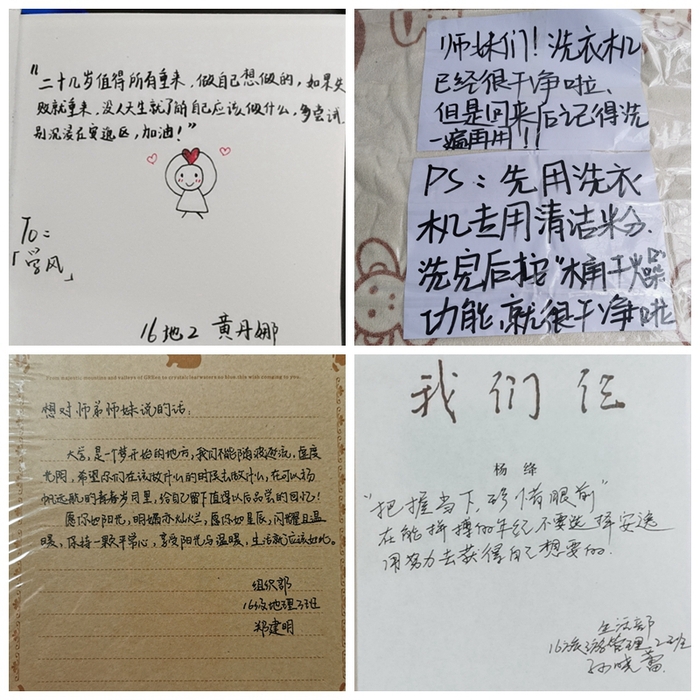 "二十几岁值得所有重来，做自己想做的，如果失
败就重来，没人天生就了解自己应该做什么，多尝试，
别沉浸在安逸区，加油！"
To：
「学风」
16地2 黄丹娜
师妹们！洗衣机
已经很干净啦、
但是回来后记得洗
一遍再用！！
PS：先用洗衣
机专用清洁粉.
洗完后按"桶干燥"
功能,就很干净啦
想对师弟师妹说的话：
大学，是一个梦开始的地方，我们不能随波逐流，虚度
光阴，希望你们在该做什么的时候去做什么，在可以扬
帆远航的青春岁月里，给自己留下值得以后品尝的回忆！
愿你如阳光，明媚亦灿烂，愿你如星辰，闪耀且温
暖，保持一颗平常心，享受阳光与温暖，生活就应该如此。
组织部
16级地理2班
郑建明
我们仨
杨绛
"把握当下，珍惜眼前"
在能拼搏的年纪不要选择安逸
用努力去获得自己想要的.
生活部